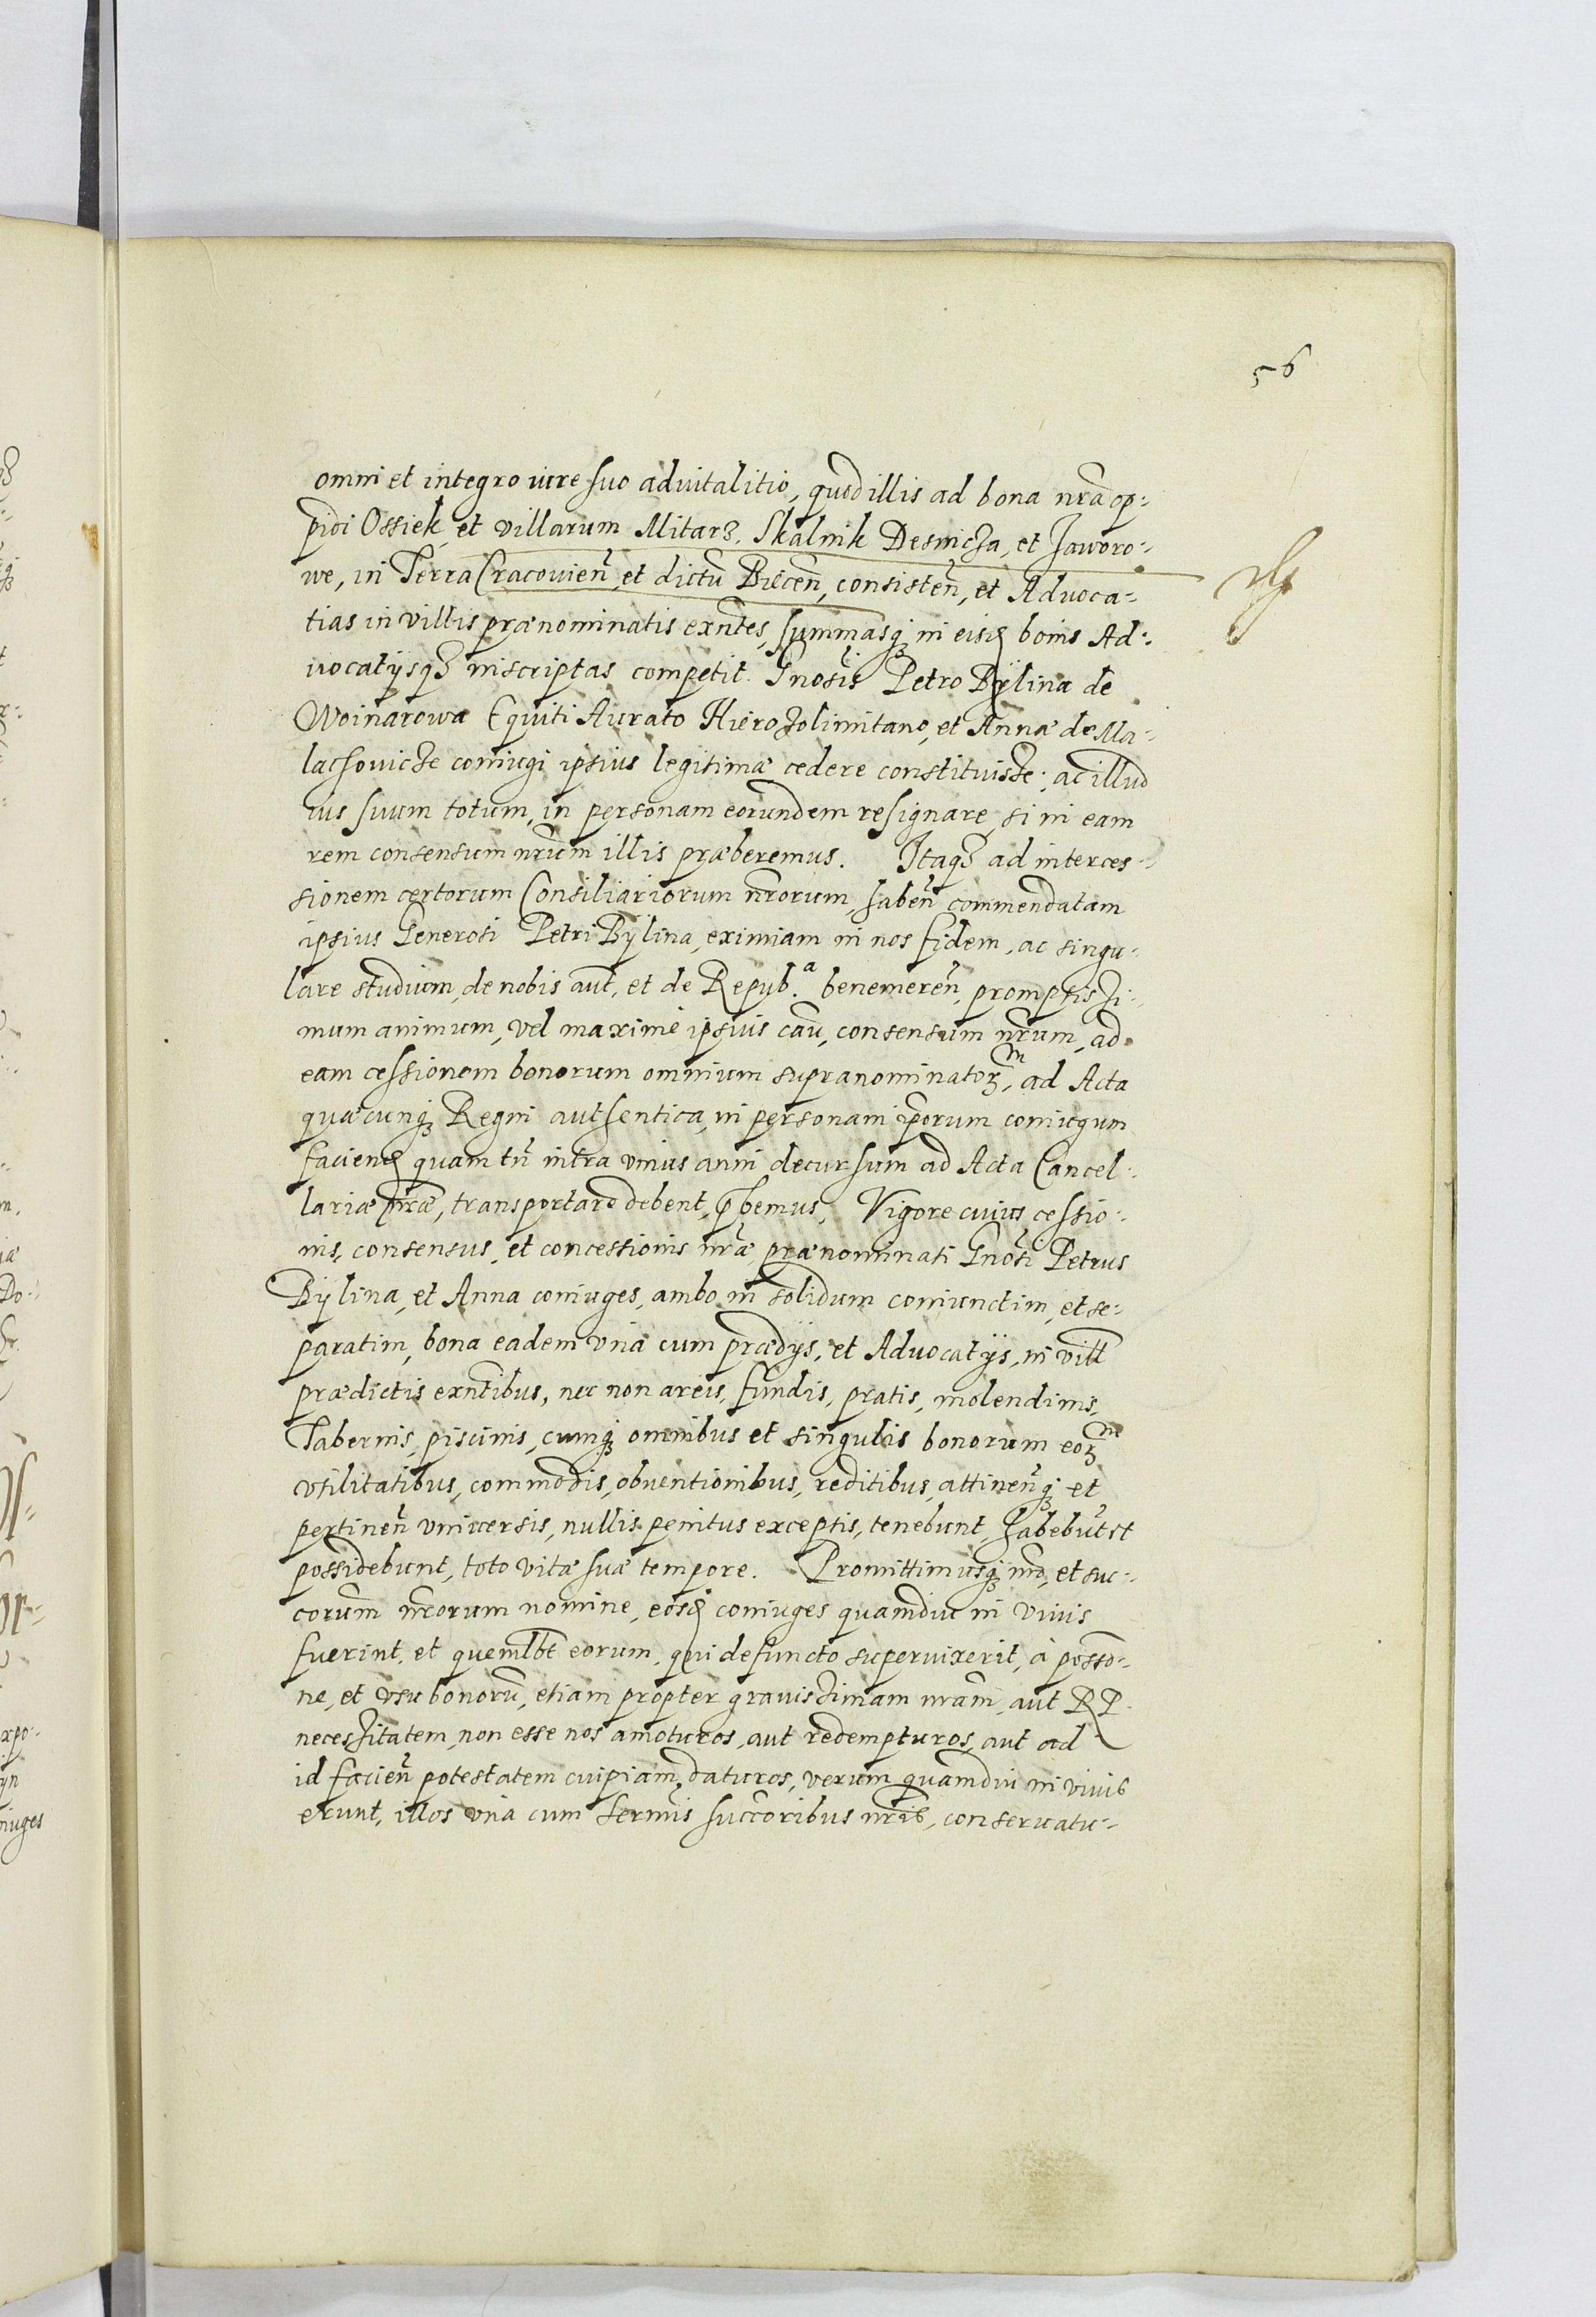 56
omni et integro iure suo aduitalitio, quod illis ad bona nrã op-
pidi Ossiek, et villarum Mitarz, Skalnik Desnicza, et Jaworo-
we, in Terra Cracovieñ, et dictũ Biecen̄, consisteñ, et Advoca-
tias in villis prænominatis exñtes, summasq; in eisd bonis Ad-
uocatijsqz inscriptas competit. Gnosis Petro Bÿlina de
Woinarowa Equiti Aurato Hierozolimitano, et Annæ de Ma-
lachouicze coniugi ipsius legitimæ cedere constituisse; ac illud
ius suum totum, in personam eorundem resignare, si in eam
rem consensum nr̃um illis præberemus. Itaqz ad interces-
sionem certorum Consiliariorum nr̃orum, habeñ commendatam
ipsius Generosi Petri Bÿlina, eximiam in nos fidem, ac singu-
lare studium, de nobis aũt, et de Repub.ᵃ benemereñ, promptissi-
mum animum, vel maximè ipsius caũ, consensum nr̃um, ad
eam cessionem bonorum omnium supranominatorᵐ, ad Acta
quæcunq; Regni authentica, in personam ip̃orum coniugum
faciend quam tñ intra vnius anni decursum ad Acta Cancel-
lariæ nr̃æ, transportare debent, p̃bemus, Vigore cuius cessio-
nis, consensus, et concessionis nr̃æ prænominati Gnõsi Petrus
Bÿlina, et Anna coniuges, ambo in solidum coniunctim, et se-
paratim, bona eadem vnà cum prædijs, et Advocatijs, in vill
prædictis exñtibus, nec non areis, fundis, pratis, molendinis,
Tabernis, piscinis, cumq; omnibus et singulis bonorum eorᵐ
vtilitatibus, commodis, obuentionibus, reditibus, attineñq; et
pertineñ vniuersis, nullis penitus exceptis, tenebunt, habebũt et
possidebunt, toto vitæ suæ tempore. Promittimusq; nr̃o, et suc-
corum nr̃orum nomine, eosd coniuges quamdiu in viuis
fuerint, et quemlb̃t eorum, qui defuncto superuixerit, à posso-
ne, et vsu bonorũ, etiam propter grauissimam nr̃am, aut RP.
necessitatem, non esse nos amoturos, aut redempturos, aut ad
id facieñ potestatem cuipiam daturos, verum quamdiu in viuis
erunt, illos vnà cum Sermis succoribus nr̃is, conseruatu-